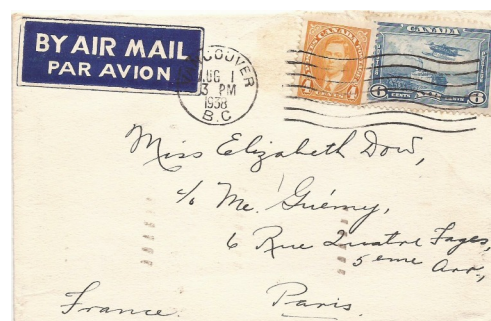 BY AIR MAIL
PAR AVION
VANCOUVER
AUG 1
3 PM
1938
B.C
CANADA
4 CENTS 4
CANADA
6 CENTS CENTS 6
Miss Elizabeth Dow,
c/o Me. Guémy,
6 Rue Quatre Fages,
5 eme Arr.,
Paris.
France.